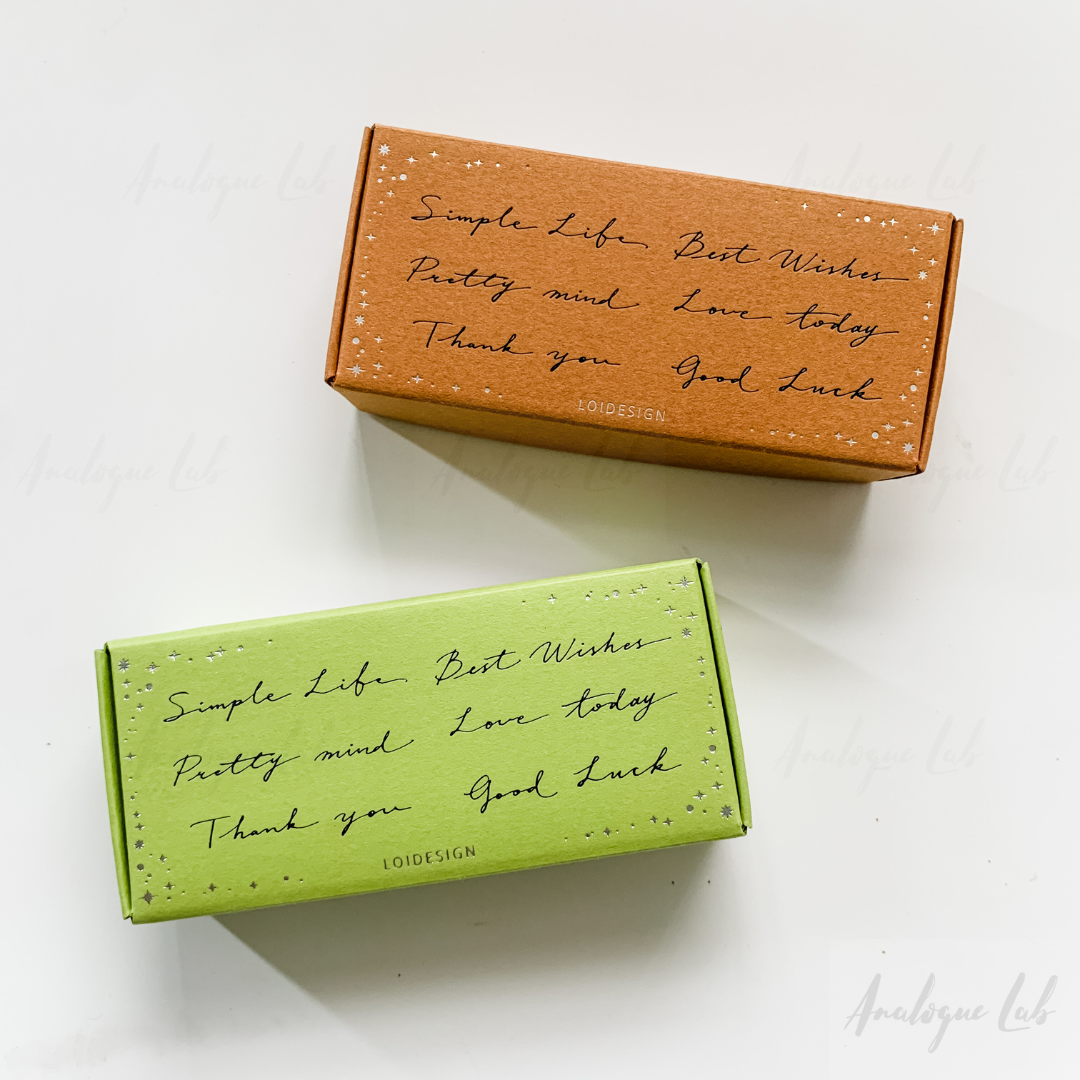 Analogue Lab Analogue Lab
Simple Life Best Wishes
Pretty mind Love today
Thank you Good Luck
LOIDESIGN
Analogue Lab Analogue Lab Analogue Lab
Simple Life Best Wishes
Pretty mind Love today
Thank you Good Luck
LOIDESIGN
Analogue Lab
Analogue Lab